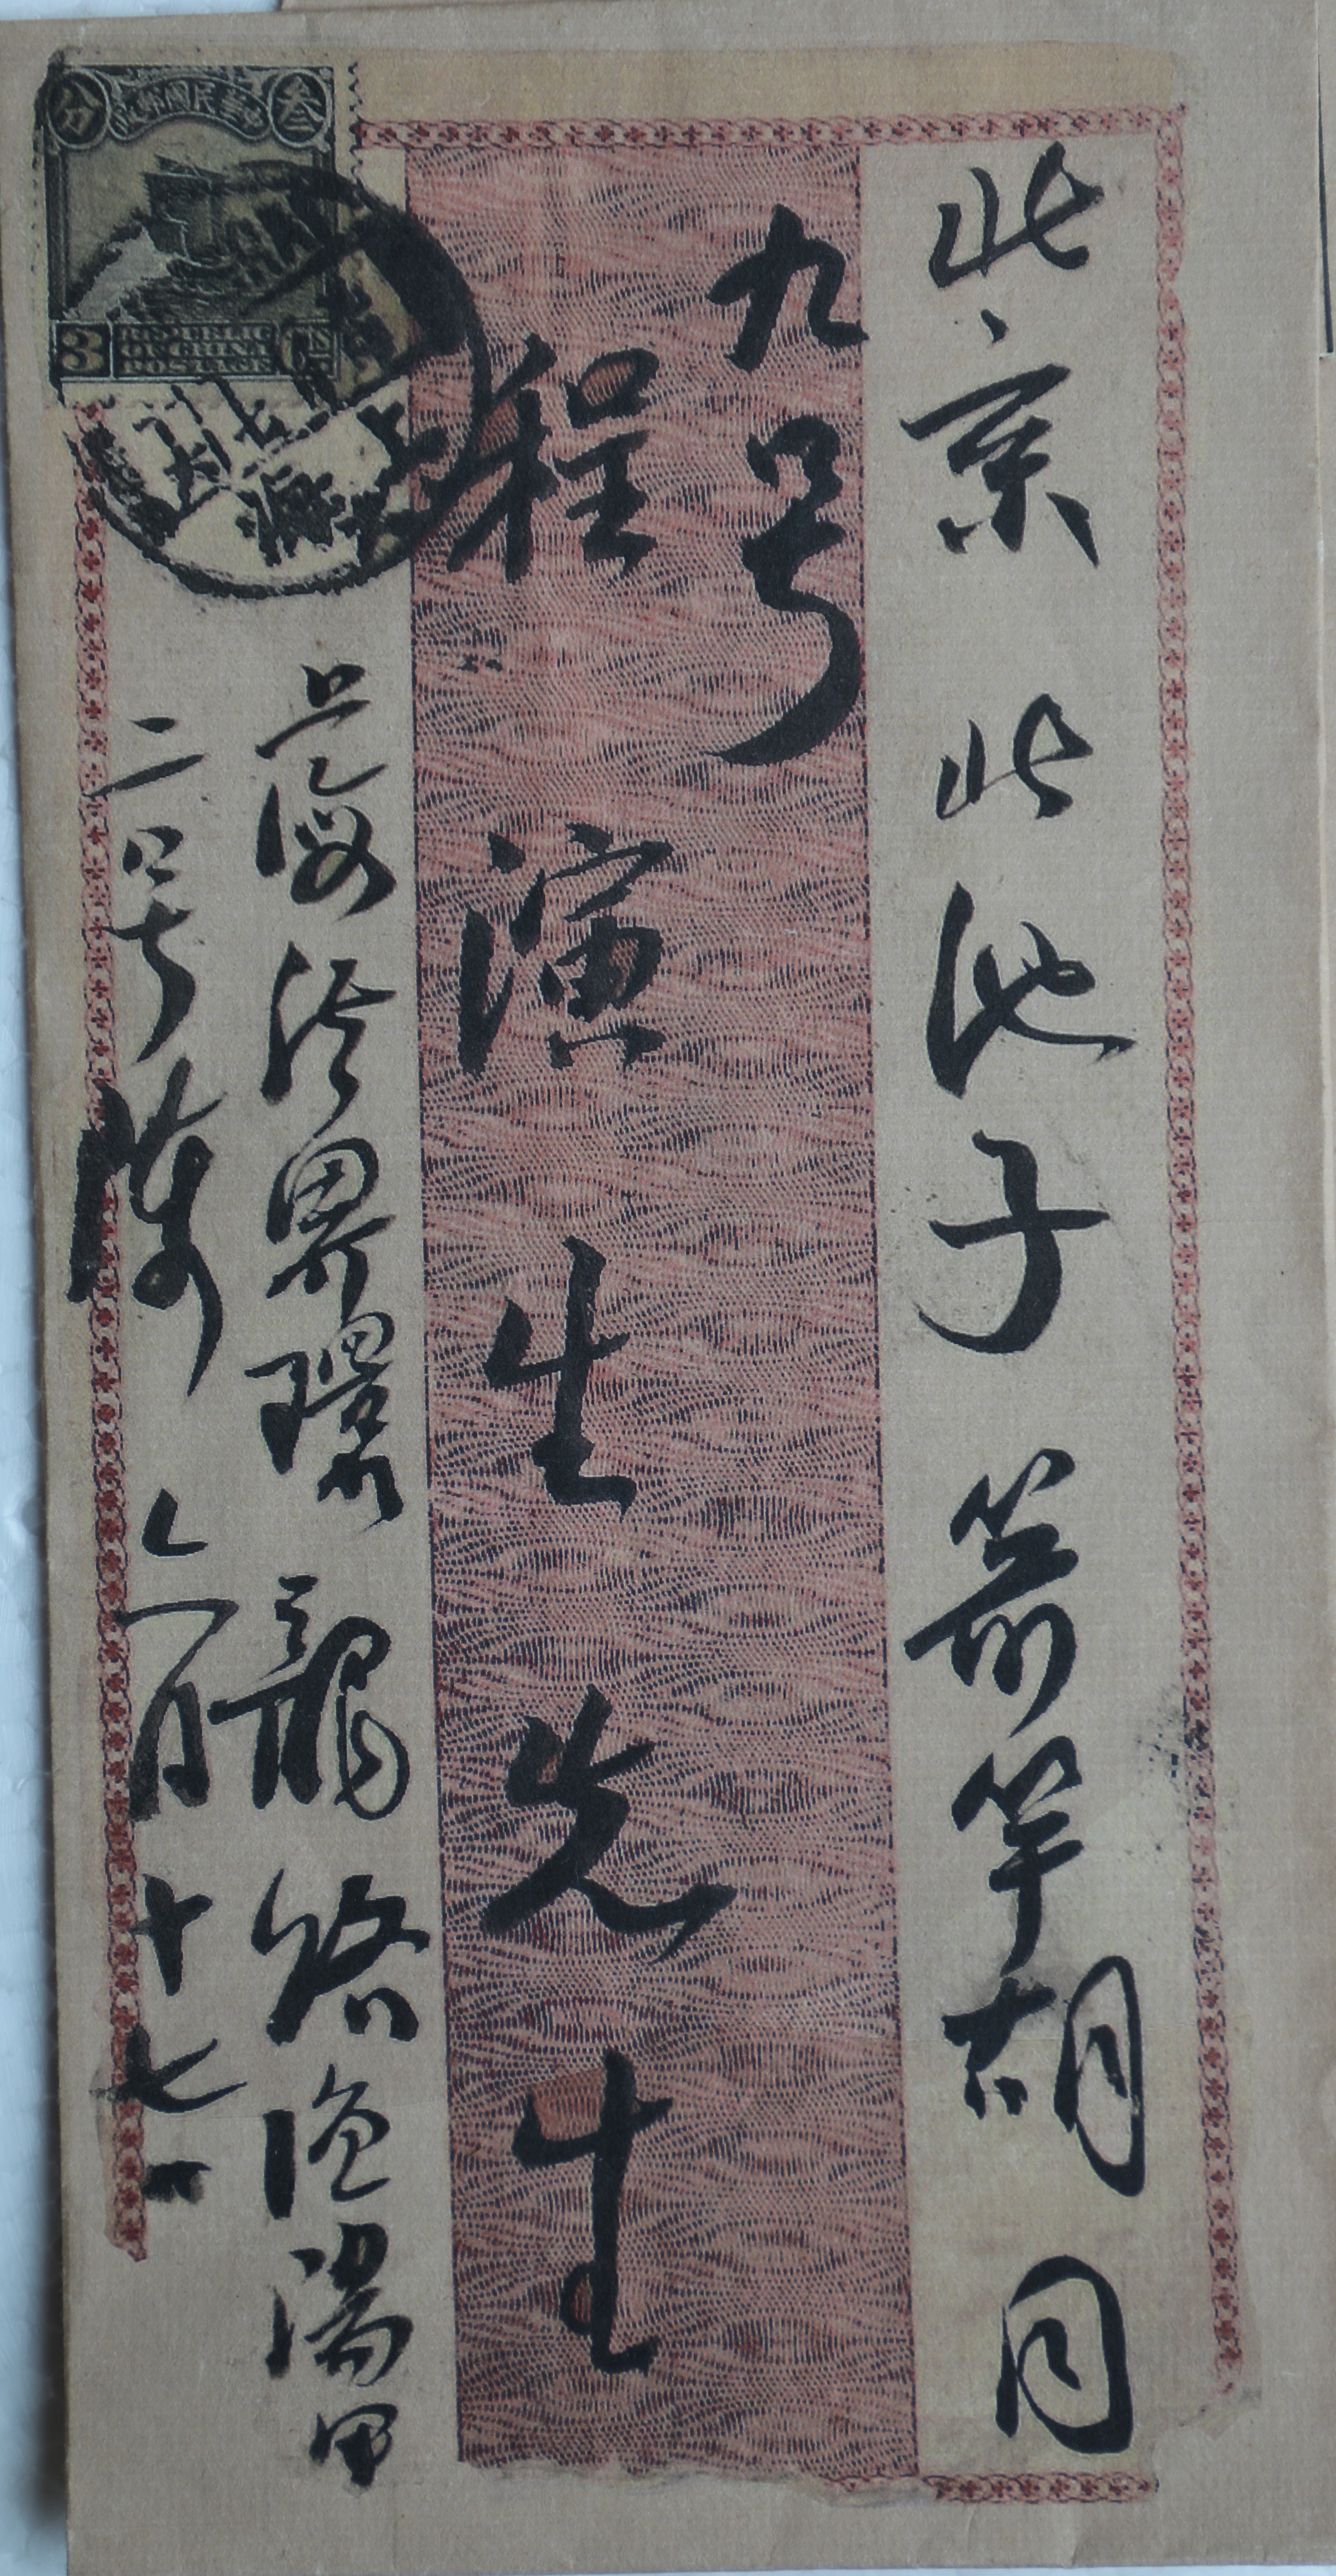 北京 北池子 箭竿胡同
九号
程演生先生
上海法界環龍路漁陽里
二号陳 六月十七日
中華民國郵政
叁
分
3
REPUBLIC
OF CHINA
POSTAGE
上海